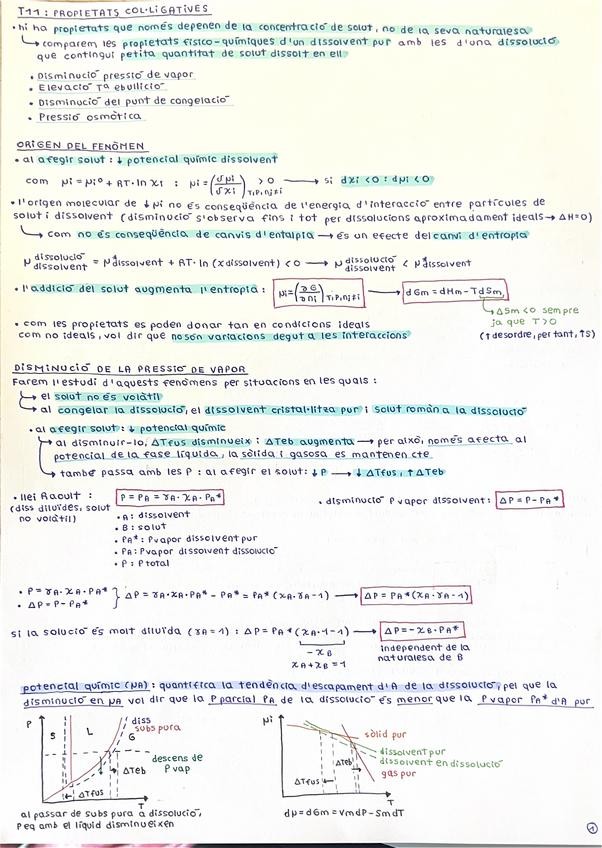 T11: PROPIETATS COL·LIGATIVES
• hi ha propietats que només depenen de la concentració de solut, no de la seva naturalesa
↳ comparem les propietats físico-químiques d'un dissolvent pur amb les d'una dissolució
que contingui petita quantitat de solut dissolt en ell
• Disminució pressió de vapor
• Elevació Tª ebullició
• Disminució del punt de congelació
• Pressió osmòtica
ORIGEN DEL FENÒMEN
• al afegir solut: ↓ potencial químic dissolvent
com μi = μi° + RT·ln xi ; μi = (∂μi/∂xi)T,P,nj≠i > 0 → si dxi < 0 : dμi < 0
• l'origen molecular de ↓μi no és conseqüència de l'energia d'interacció entre partícules de
solut i dissolvent (disminució s'observa fins i tot per dissolucions aproximadament ideals → ΔH=0)
↳ com no és conseqüència de canvis d'entalpia → és un efecte del canvi d'entropia
μ dissolució dissolvent = μ*dissolvent + RT·ln (x dissolvent) < 0 → μ dissolució dissolvent < μ*dissolvent
• l'addició del solut augmenta l'entropia: μi = (∂G/∂ni)T,P,nj≠i → dGm = dHm - TdSm
↳ ΔSm < 0 sempre
ja que T > 0
• com les propietats es poden donar tan en condicions ideals
com no ideals, vol dir que no són variacions degut a les interaccions
(↑ desordre, per tant, ↑S)
DISMINUCIÓ DE LA PRESSIÓ DE VAPOR
Farem l'estudi d'aquests fenòmens per situacions en les quals:
↳ el solut no és volàtil
↳ al congelar la dissolució, el dissolvent cristal·litza pur i solut romàn a la dissolució
• al afegir solut: ↓ potencial químic
↳ al disminuir-lo, ΔTfus disminueix i ΔTeb augmenta → per això, només afecta al
potencial de la fase líquida, la sòlida i gasosa es mantenen cte
↳ també passa amb les P: al afegir el solut: ↓P → ↓ΔTfus, ↑ΔTeb
• llei Raoult: P = PA = γA·xA·PA*
(diss diluïdes, solut
no volàtil)
• disminució P vapor dissolvent: ΔP = P - PA*
• A: dissolvent
• B: solut
• PA*: Pvapor dissolvent pur
• PA: Pvapor dissolvent dissolució
• P: P total
• P = γA·xA·PA*
• ΔP = P - PA*
} ΔP = γA·xA·PA* - PA* = PA* (xA·γA - 1) → ΔP = PA*(xA·γA - 1)
si la solució és molt diluïda (γA = 1): ΔP = PA* (xA·1 - 1) → ΔP = -xB·PA*
- xB
xA + xB = 1
independent de la
naturalesa de B
potencial químic (μA): quantifica la tendència d'escapament d'A de la dissolució, pel que la
disminució en μA vol dir que la P parcial PA de la dissolució és menor que la P vapor PA* d'A pur
P
S
L
G
diss
subs pura
descens de
P vap
ΔTeb
ΔTfus
T
al passar de subs pura a dissolució,
P eq amb el líquid disminueixen
μi
sòlid pur
dissolvent pur
dissolvent en dissolució
gas pur
ΔTeb
ΔTfus
T
dμ = dGm = VmdP - SmdT
1